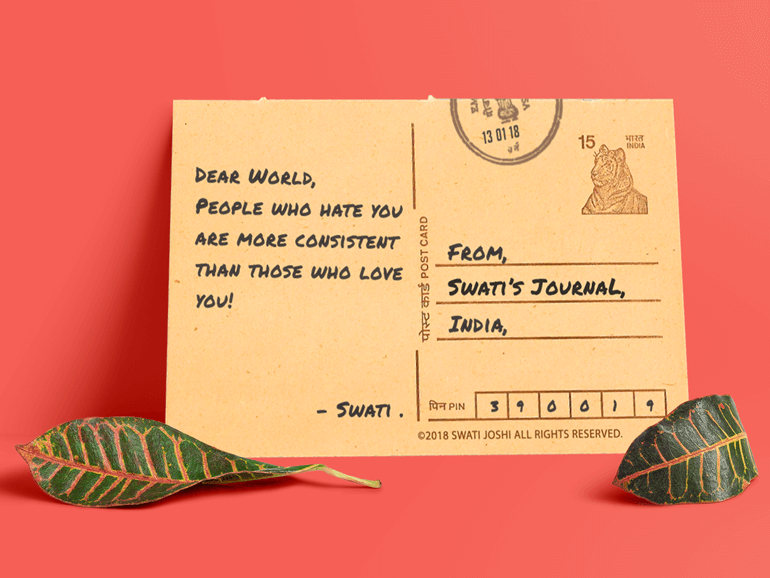 Dear World,
People who hate you
are more consistent
than those who love
you!
- Swati .
पोस्ट कार्ड POST CARD
13 01 18
15
भारत
INDIA
From,
Swati's Journal,
India,
पिन PIN 3 9 0 0 1 9
©2018 SWATI JOSHI ALL RIGHTS RESERVED.